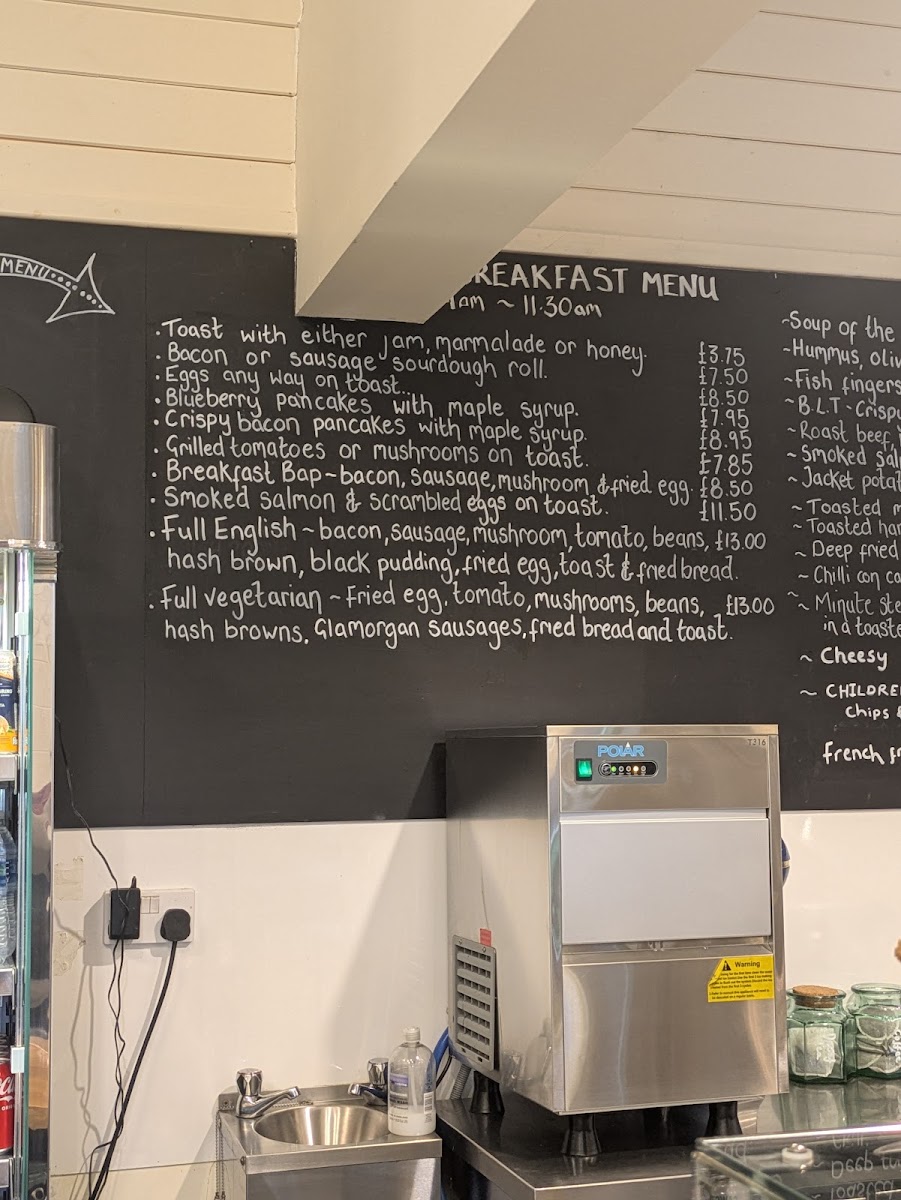 MENU
REAKFAST MENU
am ~ 11.30am
. Toast with either jam, marmalade or honey. £3.75
. Bacon or sausage sourdough roll. £7.50
. Eggs any way on toast.. £8.50
. Blueberry pancakes with maple syrup. £7.95
. Crispy bacon pancakes with maple syrup. £8.95
. Grilled tomatoes or mushrooms on toast. £7.85
. Breakfast Bap ~ bacon, sausage, mushroom & fried egg £8.50
. Smoked salmon & scrambled eggs on toast. £11.50
. Full English ~ bacon, sausage, mushroom, tomato, beans, £13.00
hash brown, black pudding, fried egg, toast & fried bread.
. Full vegetarian ~ Fried egg, tomato, mushrooms, beans, £13.00
hash browns, Glamorgan sausages, fried bread and toast.
~ Soup of the
~ Hummus,
~ Fish fingers
~ B.L.T - Crispy
~ Roast beef
~ Smoked
~ Jacket
~ Toasted
~ Toasted
~ Deep fried
~ Chilli con
~ Minute
in a
~ Cheesy
~
Chips &
french
POLAR
T316
Warning